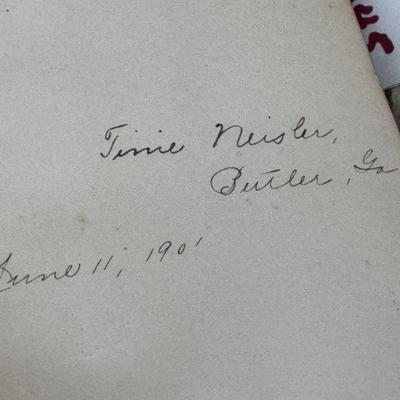 Timie Neisler,
Butler, Ga
June 11, 1901